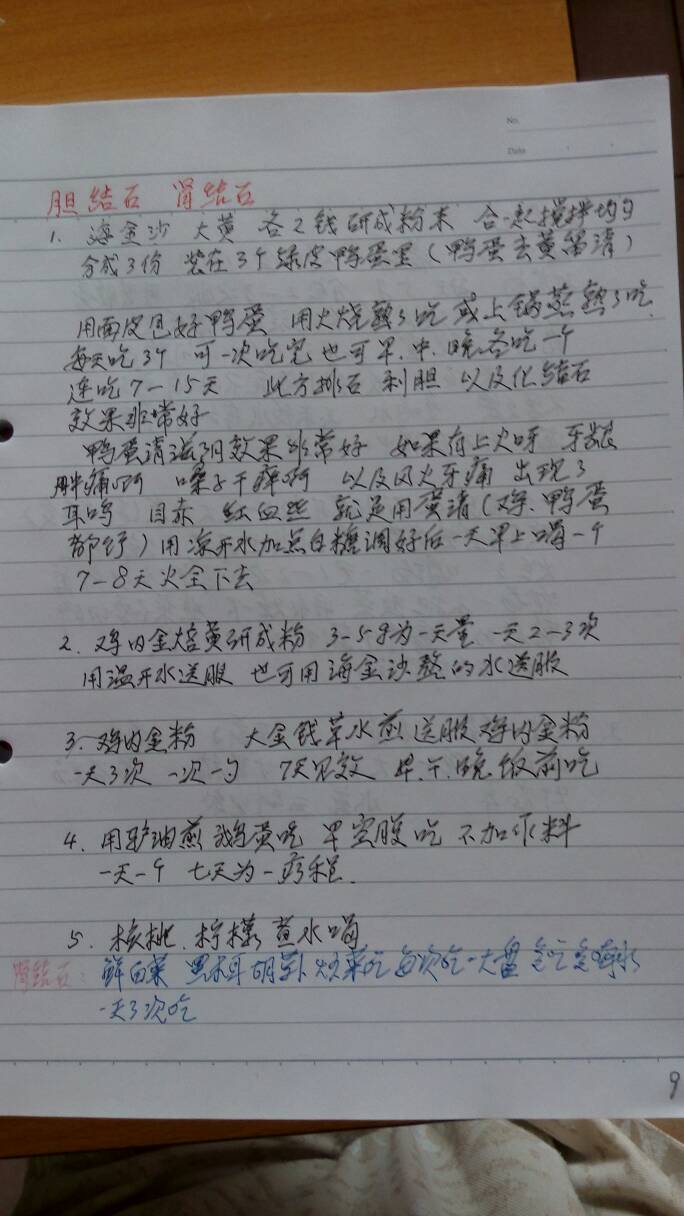 No.
Date
胆结石 肾结石
1. 海金沙 大黄 各2钱研成粉末 合一起搅拌均匀
分成3份 装在3个绿皮鸭蛋里(鸭蛋去黄留清)
用面皮包好鸭蛋 用火烧熟了吃 或上锅蒸熟了吃.
每天吃3个 可一次吃完也可早.中.晚各吃一个
连吃7-15天 此方排石 利胆 以及化结石
效果非常好
鸭蛋清滋阴效果非常好 如果有上火呀 牙龈
肿痛啊 嗓子干痒啊 以及风火牙痛 出现了
耳鸣 目赤 红血丝 就是用蛋清(鸡.鸭蛋
都行)用凉开水加点白糖调好后一天早上喝一个
7-8天火全下去
2. 鸡内金焙黄研成粉 3-5g为一天量 一天2-3次
用温开水送服 也可用海金沙整的水送服
3. 鸡内金粉 大金钱草水煎送服鸡内金粉
一天3次 一次一勺 7天见效 早.午.晚饭前吃
4. 用驴油煎鹅蛋吃 早空腹吃 不加作料
一天一个 七天为一疗程.
5. 核桃.柠檬煮水喝
肾结石: 鲜白菜 黑木耳胡萝卜炒菜吃每次吃一大盘
一天3次吃
9